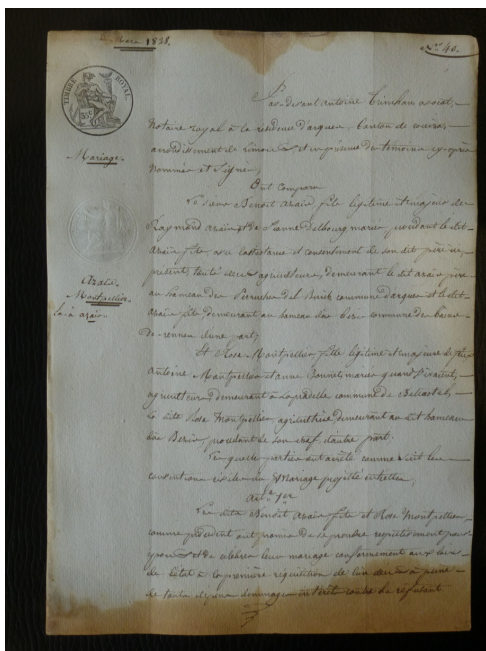 Mars 1828.
N° 40.
TIMBRE ROYAL
35c
Mariage.
Par-devant Antoine avocat,
Notaire royal à la résidence d'arques, Canton de couiza,
arrondissement de Limoux et en présence des témoins cy-après
Nommés et Signés,
Ont Comparu
Le sieur Benoit Azaïs fils légitime et majeur de
Raymond Azaïs et de Jeanne Delbourg mariés, procédant le dit
Azaïs fils sous l'assistance et consentement de son dit père ici
présent, tous deux agriculteurs, demeurant le dit azaïs père
au hameau des commune d'arques et le dit
Azaïs fils demeurant au hameau commune de
de rennes d'une part,
Montpellier
à azaïs
Et Rose Montpellier fille légitime et majeure de
Antoine Montpellier et anne Bonnet mariés quand vivaient,
agriculteurs demeurant à Lapradelle commune de
la dite Rose Montpellier, agricultrice demeurant au dit hameau
procédant de son chef d'autre part.
Lesquelles parties ont arrêté comme suit les
conventions civiles du Mariage projetté entr'elles,
Art. 1er
Les dits Benoit Azaïs fils et Rose Montpellier,
comme procèdent ont promis de se prendre respectivement pour
époux et de célébrer leur mariage conformément aux lois
de l'état à la première réquisition de l'un d'eux à peine
de tous dépens dommages intérêts contre le refusant.